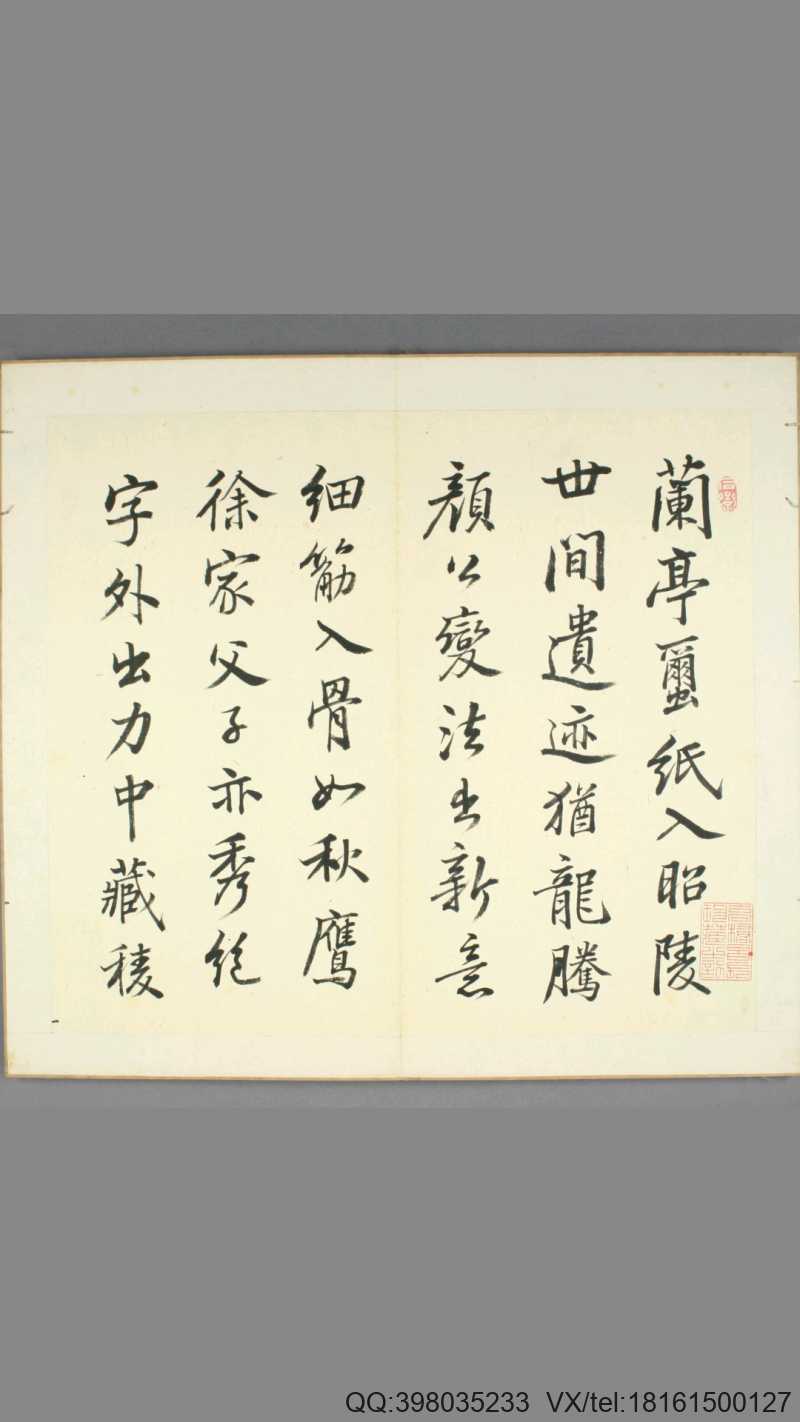 蘭亭蠒紙入昭陵
世間遺迹猶龍騰
顏公變法出新意
細筋入骨如秋鷹
徐家父子亦秀絶
字外出力中藏稜
QQ:398035233 VX/tel:18161500127